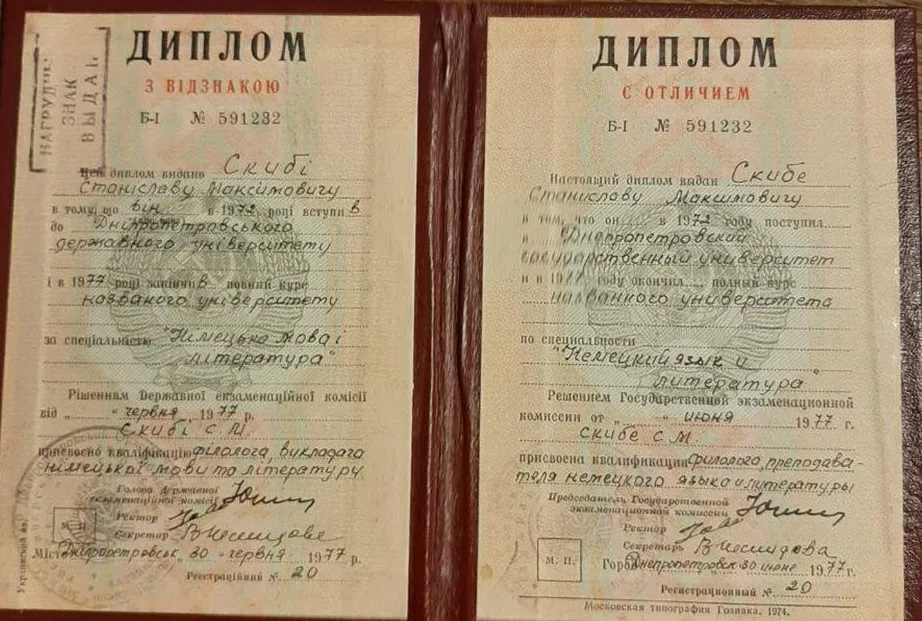 НАГРУДНЫЙ
ЗНАК
ВЫДАН
ДИПЛОМ
З ВІДЗНАКОЮ
Б-І № 591232
Цей диплом видано Скибі
Станіславу Максимовичу
в тому, що він в 1972 році вступив
до Дніпропетровського
державного університету
і в 1977 році закінчив повний курс
названого університету
за спеціальністю "Німецька мова і
література"
Рішенням Державної екзаменаційної комісії
від " " червня 1977 р.
Скибі С.М.
присвоєно кваліфікацію філолога, викладача
німецької мови та літератури
Голова Державної
екзаменаційної комісії
Ректор
М. П.
Секретар
Місто Дніпропетровськ 30 червня 1977 р.
Реєстраційний № 20
ДИПЛОМ
С ОТЛИЧИЕМ
Б-І № 591232
Настоящий диплом выдан Скибе
Станиславу Максимовичу
в том, что он в 1972 году поступил
в Днепропетровский
государственный университет
и в 1977 году окончил полный курс
названного университета
по специальности
"Немецкий язык и
литература"
Решением Государственной экзаменационной
комиссии от " " июня 1977 г.
Скибе С.М.
присвоена квалификация филолога, преподава-
теля немецкого языка и литературы
Председатель Государственной
экзаменационной комиссии
Ректор
Секретарь
М. П.
Город Днепропетровск 30 июня 1977 г.
Регистрационный № 20
Московская типография Гознака. 1974.